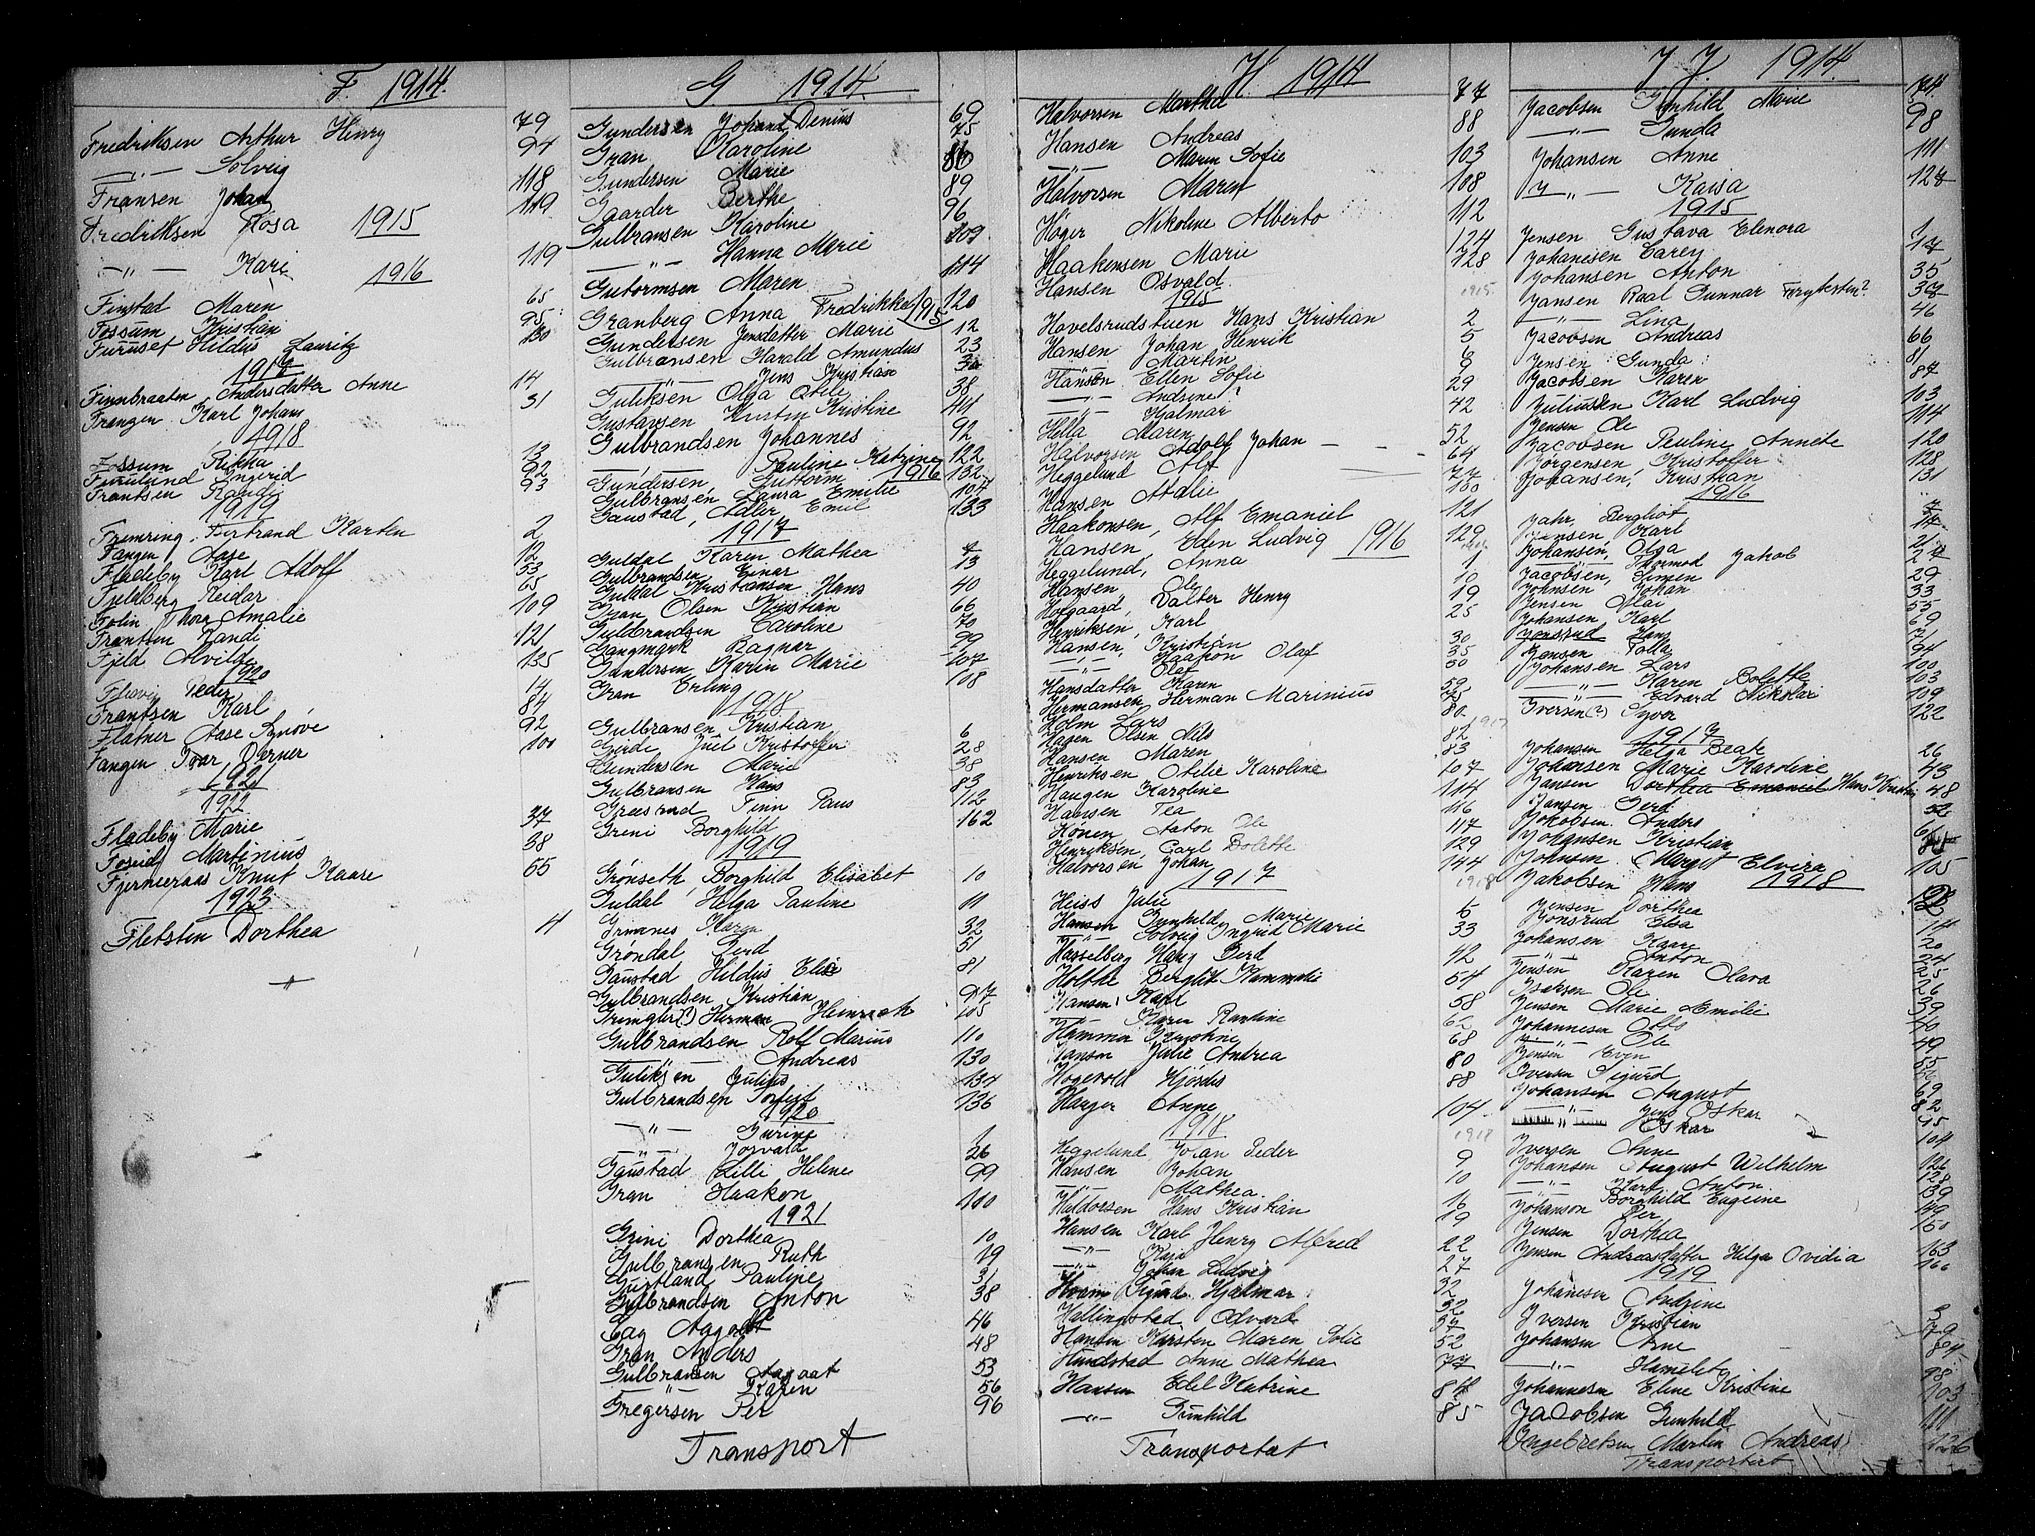 F. 1914.
Fredriksen Arthur Henry 79
—"— Solveig 94
Fransen Johan 118
Fredriksen Rosa 119
1915
—"— Kari 119
1916
Finstad Maren 65
Fossum Kristian 95
Furuset Hildus Lauritz 130
1917
Finnbraaten Andersdatter Anne 14
Frangen Karl Johans 31
1918
Fossum Rikka 13
Furulund Ingrid 92
Frantsen Randi 93
1919
Fremring, Bertrand Karsten 2
Fangen Aase 12
Fladeby Karl Adolf 53
Fjeldberg Reidar 65
Folin Thora Amalie 109
Frantsen Randi 121
Fjeld Alvilde 135
1920
Flesvig Peder 14
Frantsen Karl 84
Flatner Aase Synöve 92
Fangen Ivar Verner 100
1921
1922
Fladeby Marie 37
Foseid Martinius 38
Fjerneraas Knut Kaare 55
1923
Fletsten Dorthea 4
G 1914.
Gundersen Johan Denius 69
Gran Karoline 75
Gundersen Marie 86
Gaarder Berthe 89
Gulbransen Karoline 96
—"— Hanna Marie 109
Gutormsen Maren 114
Granberg Anna Fredrikke 120
1915
Gundersen Jensdatter Marie 12
Gulbransen Harald Amundus 23
—"— Jens Kristian 30
Guliksen Olga Otile 38
Gustavsen Kirsten Kristine 44
Gulbrandsen Johannes 92
—"— Pauline Katrine 122
1916
Gundersen, Guttorm 132
Gulbransen, Laura Emilie 104
Gaustad, Adler Emil 133
1917
Guldal Karen Mathea
Gulbrandsen Einar 13
Guldal Kristiansen Hans 40
Gran Olsen Kristian 66
Gulbrandsen Caroline 70
Gangmyrk Ragnar 99
Gundersen, Karin Marie 107
Gran Erling 108
1918
Gulbransen Kristian 6
Gjerde Juel Kristoffer 28
Gundersen Marie 38
Gulbransen Hans 83
Greesrud Finn Paus 112
Greni Borghild 162
1919
Grönseth, Borghild Elisabet 10
Guldal Helga Pauline 11
Grimnes Karen 32
Gröndal Gerd 51
Gaustad Hildus Elise 81
Gulbrandsen Kristian 97
Gringler(?) Herman Heinrich 105
Gulbrandsen Rolf Marius 110
—"— Andreas 130
Guliksen Julius 134
Gulbrandsen Torfist 136
1920
—"— Gurine 1
—"— Josvald 26
Gaustad Lilli Helene 99
Gran Haakon 100
1921
Grini Dorthea 10
Gulbransen Ruth 19
Gustland Pauline 31
Gulbrandsen Anton 38
Gag Aggott 46
Gran Anders 48
Gulbransen Aagaat 53
—"— Karen 56
Gregersen Per 96
Transport
H. 1914
Halvorsen Martha 77
Hansen Andreas 88
—"— Maren Sofie 103
Halvorsen Maren 108
Höger Nikoline Alberto 112
Haakensen Marie 124
Hansen Osvald 128
1915
Hovelsrudstuen Hans Kristian 2
Hansen Johan Henrik 5
—"— Martin 6
Hansen Ellen Sofie 9
—"— Andrine? 29
—"— Hjalmar 42
Hella Maren 52
Halvorsen Adolf Johan 64
Heggelund Alf 77
Hansen Atalie 100
Haakonsen, Alf Emaniel 121
Hansen, Eden Ludvig 129
1916
Heggelund, Anna 1
Hansen Ole 10
Holgaard, Valter Henry 19
Henriksen, Karl 25
Hansen, Kristian 30
—"— Haakon Olaf 35
—"— Olaf 50
Hansdatter Karen 59
Hermansen Herman Marinius 75
Holm Lars 80
Hagen Olsen Nils 82
Hansen Maren 83
Henriksen Otilie Karoline 107
Haugen Karoline 114
Hansen Tea 116
Hönen Anton Ole 117
Henriksen, Carl Dolette 129
Halvorsen Johan 144
1917
Heiss Julie 6
Hansen Gunhilda Marie 33
—"— Solveig Ingrid Marie
Hasselberg Harry Gerd 42
Holthe Berglit Kammatie 54
Hansen, Karl 58
—"— Karen Pauline 62
Hammer Josephine 68
Hansen Julie Andrea 80
Hogevold Hjördis 88
Hauger Anne 104
1918
Heggelund Johan Peder 9
Hansen Johan 10
—"— Mathea 16
Haldorsen Hans Kristian 19
Hansen Karl Henry Alfred 22
—"— Kari 27
—"— Johan Ludvig 32
Hvam Sigurd Hjalmar 32
Hallingstad Edvard 39
Hansen Karsten Maren Sofie 52
Hundstad Anne Mathea 77
Hansen Edel Katrine 84
—"— Gunhild 85
Transportert
I J. 1914
Jacobsen Gunhild Marie 74
—"— Gunda 98
Johansen Anne 111
—"— Kaisa 127
1915
Jensen Gustava Elenora 1
Johanesen Carey 17
Johansen Anton 35
Jansen Raal Gunnar Fryksten? 37
—"— Lina 46
Jacobsen Andreas 66
Jensen Gunda 81
Jacobsen Karen 87
Juliussen Karl Ludvig 103
Jensen Ole 114
Jacobsen Pauline Annete 120
Jörgensen, Kristoffer 128
Johansen, Kristian 131
1916
Jahr, Bergliot 7
Jansen, Karl 17
Johansen, Olga 21
—"— Thormod Jakob 27
Jacobsen, Simen 29
Johnsen Johan 33
Jensen Olai 55
Johansen Karl 69
Jonsrud Hans 71
Jensen Tolla 94
Johansen Lars 100
—"— Karen Bolette 103
—"— Edvard Nikolai 109
Iversen(?) Syver 122
1917
Johansen Helga Beate 26
Johansen Marie Karoline 43
Jansen Dorthea Emaniel Hans Kristian 48
Jansen Gerd 52
Jakobsen Anders
Johansen Kristian
Johnsen Margit Elvira 105
Jakobsen Hans
1918
Jensen Dorthea 12
Jonsrud Elsa 14
Johansen Kaare 20
—"— Anton 24
Jensen Karen Olava 25
Isaksen Ole 26
Jensen Marie Emilie 39
Johannesen Otto 40
—"— Ole 49
Jensen Even 55
Iversen Sigurd
Johansen August 69
—"— Jens Oskar 82
—"— Oskar 95
Iversen Anne 104
Johansen August Wilhelm 126
—"— Karl Anton 128
Johanson Borghild Eugeine 139
—"— Per 149
Jensen Dorthea 150
Jensen Andreasdatter Helga Ovidia 163
1919
Johanesen Andrine
Iversen Kristian
Johansen Arne
—"— Hamlet 98
Johannesen Eline Kristine 103
Jacobsen Gunhild 111
Ingebretsen Martin Andreas 126
Transportert